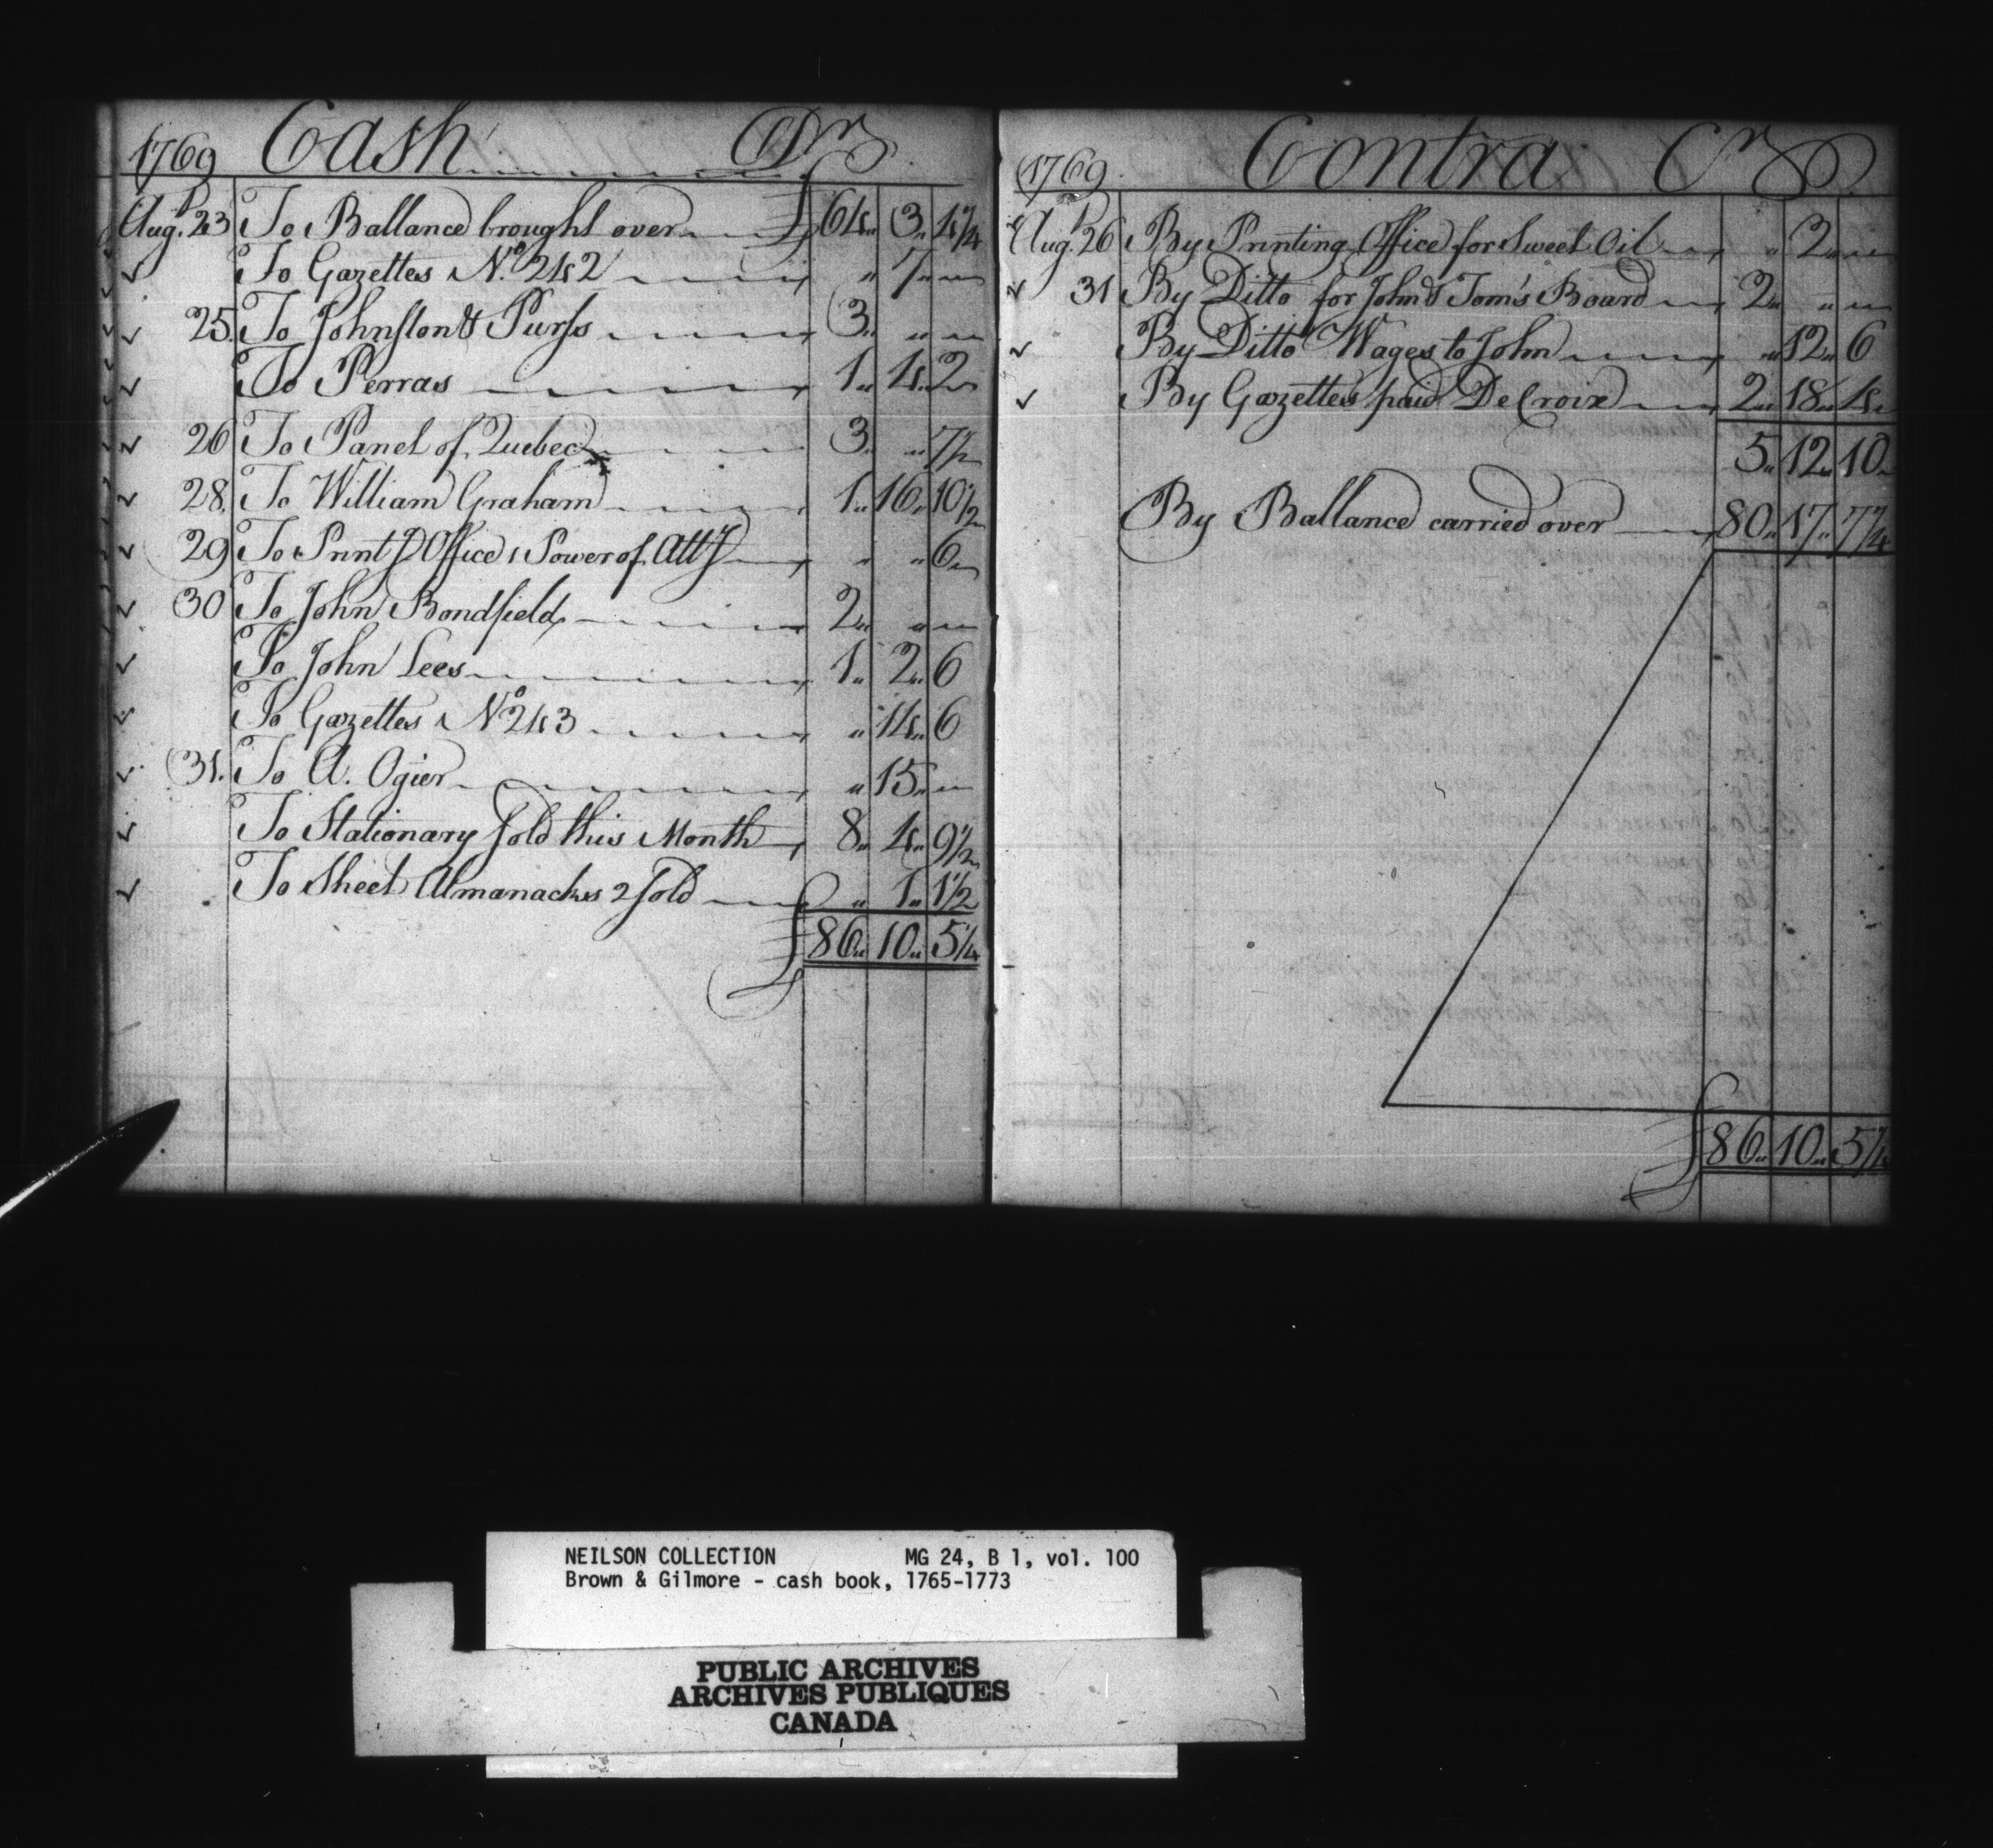 1769 Cash Dr
Augt 23 To Ballance brought over £ 64 " 3 " 4 1/4
To Gazettes No. 242 " 7 "
25. To Johnston & Purss 3 " "
To Perras 1 " 4 " 2
26 To Panet of Quebec 3 " " 7 1/2
28. To William Graham 1 " 16 " 10 1/2
29 To Printg Office, 1 Power of Atty " " 6
30 To John Bondfield 2 " "
To John Lees 1 " 2 " 6
To Gazettes No 243 " 14 " 6
31. To A. Ogier " 15 "
To Stationary sold this Month 8 " 4 " 9 1/2
To Sheet Almanacks 2 sold " 1 " 1 1/2
£ 86 " 10 " 5 1/4
1769. Contra Cr
Augt 26 By Printing Office for Sweet Oil " 2 "
31 By Ditto for John & Tom's Board 2 " "
By Ditto Wages to John " 12 " 6
By Gazettes paid De Croix 2 " 18 " 4
5 " 12 " 10
By Ballance carried over 80 " 17 " 7 1/4
£ 86 " 10 " 5 1/4
NEILSON COLLECTION MG 24, B 1, vol. 100
Brown & Gilmore - cash book, 1765-1773
PUBLIC ARCHIVES
ARCHIVES PUBLIQUES
CANADA